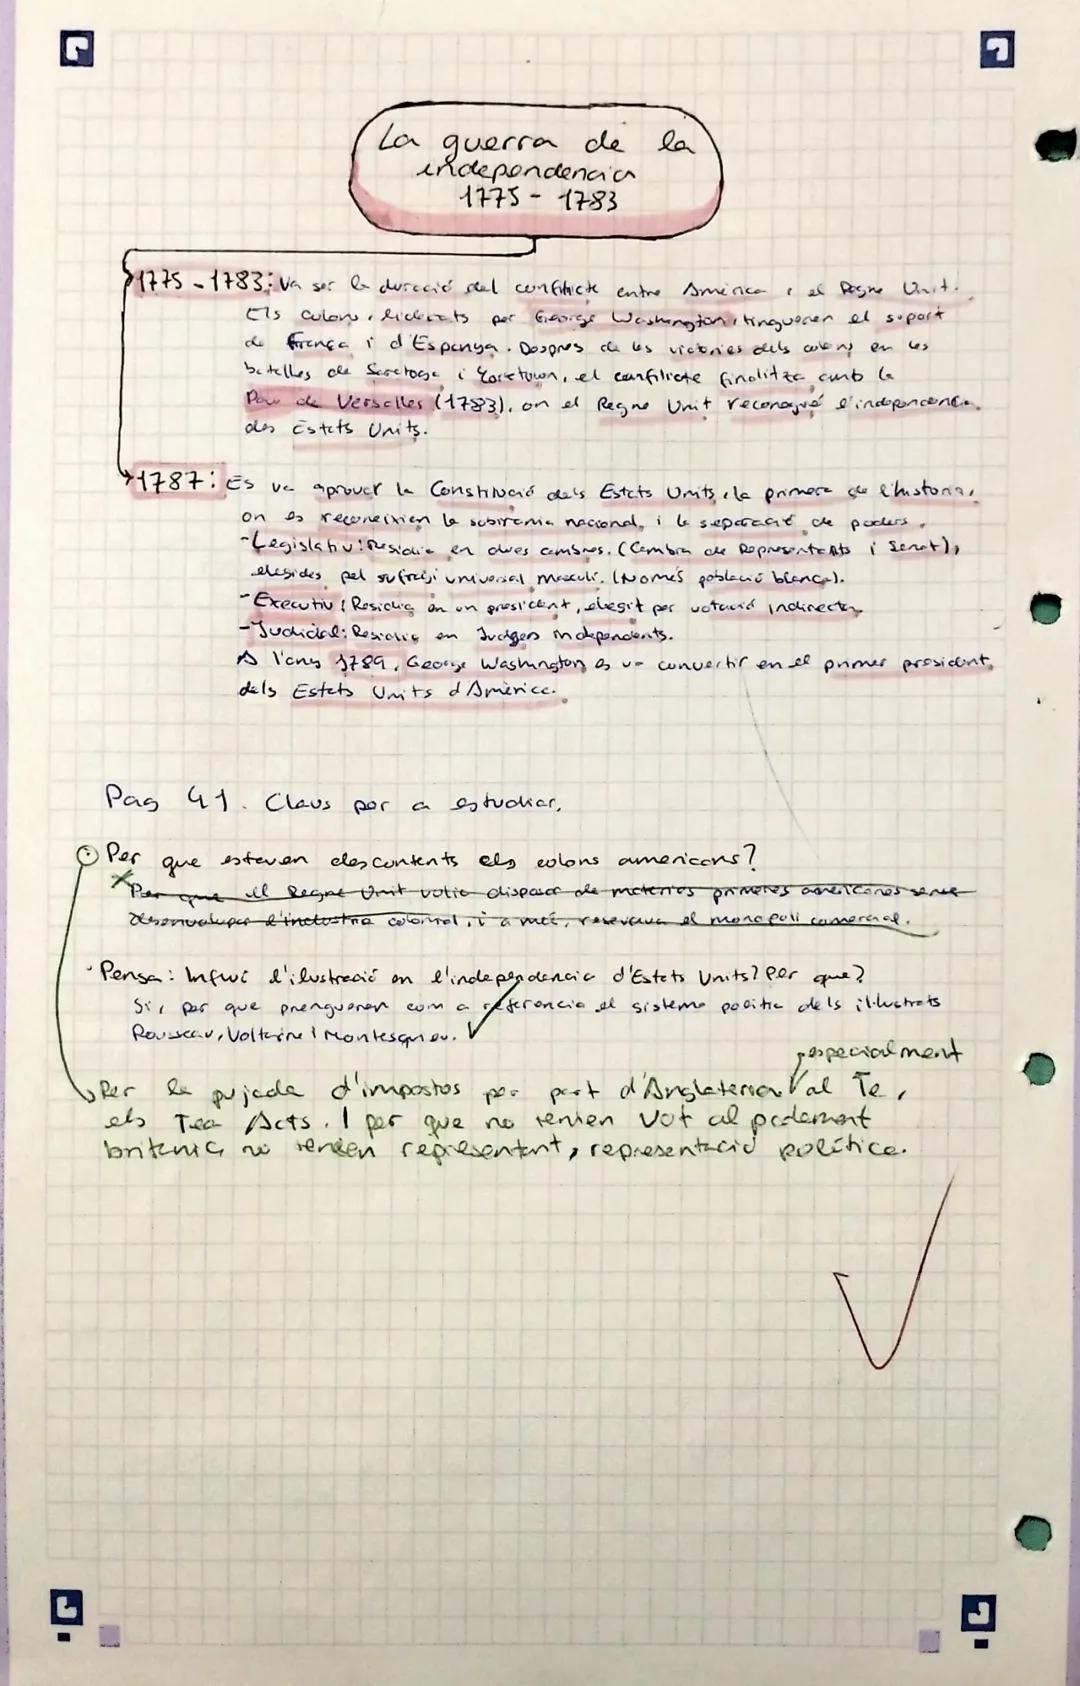 La guerra de la
independencia
1775 - 1783
1775 - 1783: Va ser la duració del conflicte entre Amèrica i el Regne Unit.
Els colons, liderats per George Washington, tingueren el suport
de França i d'Espanya. Despres de les victories dels colons en les
batelles de Saratoga i Yorktown, el conflicte finalitza amb la
Pau de Versalles (1783), on el Regne Unit reconegué l'independencia
des Estats Units.
1787: Es va aprovar la Constitució dels Estats Units, la primera de l'historia,
on es reconeixien la sobirania nacional, i la separació de poders.
-Legislatiu: Residia en dues cambres. (Cambra de Representants i Senat),
elegides pel sufragi universal masculí. (Només població blanca).
-Executiu: Residia en un president, elegit per votació indirecta.
-Judicial: Residia en Jutges independents.
A l'any 1789, George Washington es va convertir en el primer president
dels Estats Units d'Amèrica.
Pag 41. Claus per a estudiar.
Per que estaven descontents els colons americans?
Per que el Regne Unit volia disposar de materies primeres americanes sense
desenvolupar l'industria colonial, i a més, reservava el monopoli comercial.
· Pensa: Influí l'ilustració en l'independencia d'Estats Units? Per que?
Si, per que prengueren com a referencia el sistema politic dels il·lustrats
Rousseau, Voltaire i Montesquieu.
especialment
Per la pujada d'impostos per part d'Anglaterra al Te,
els Tea Acts. I per que no tenien vot al parlament
britanic no tenien representant, representació política.